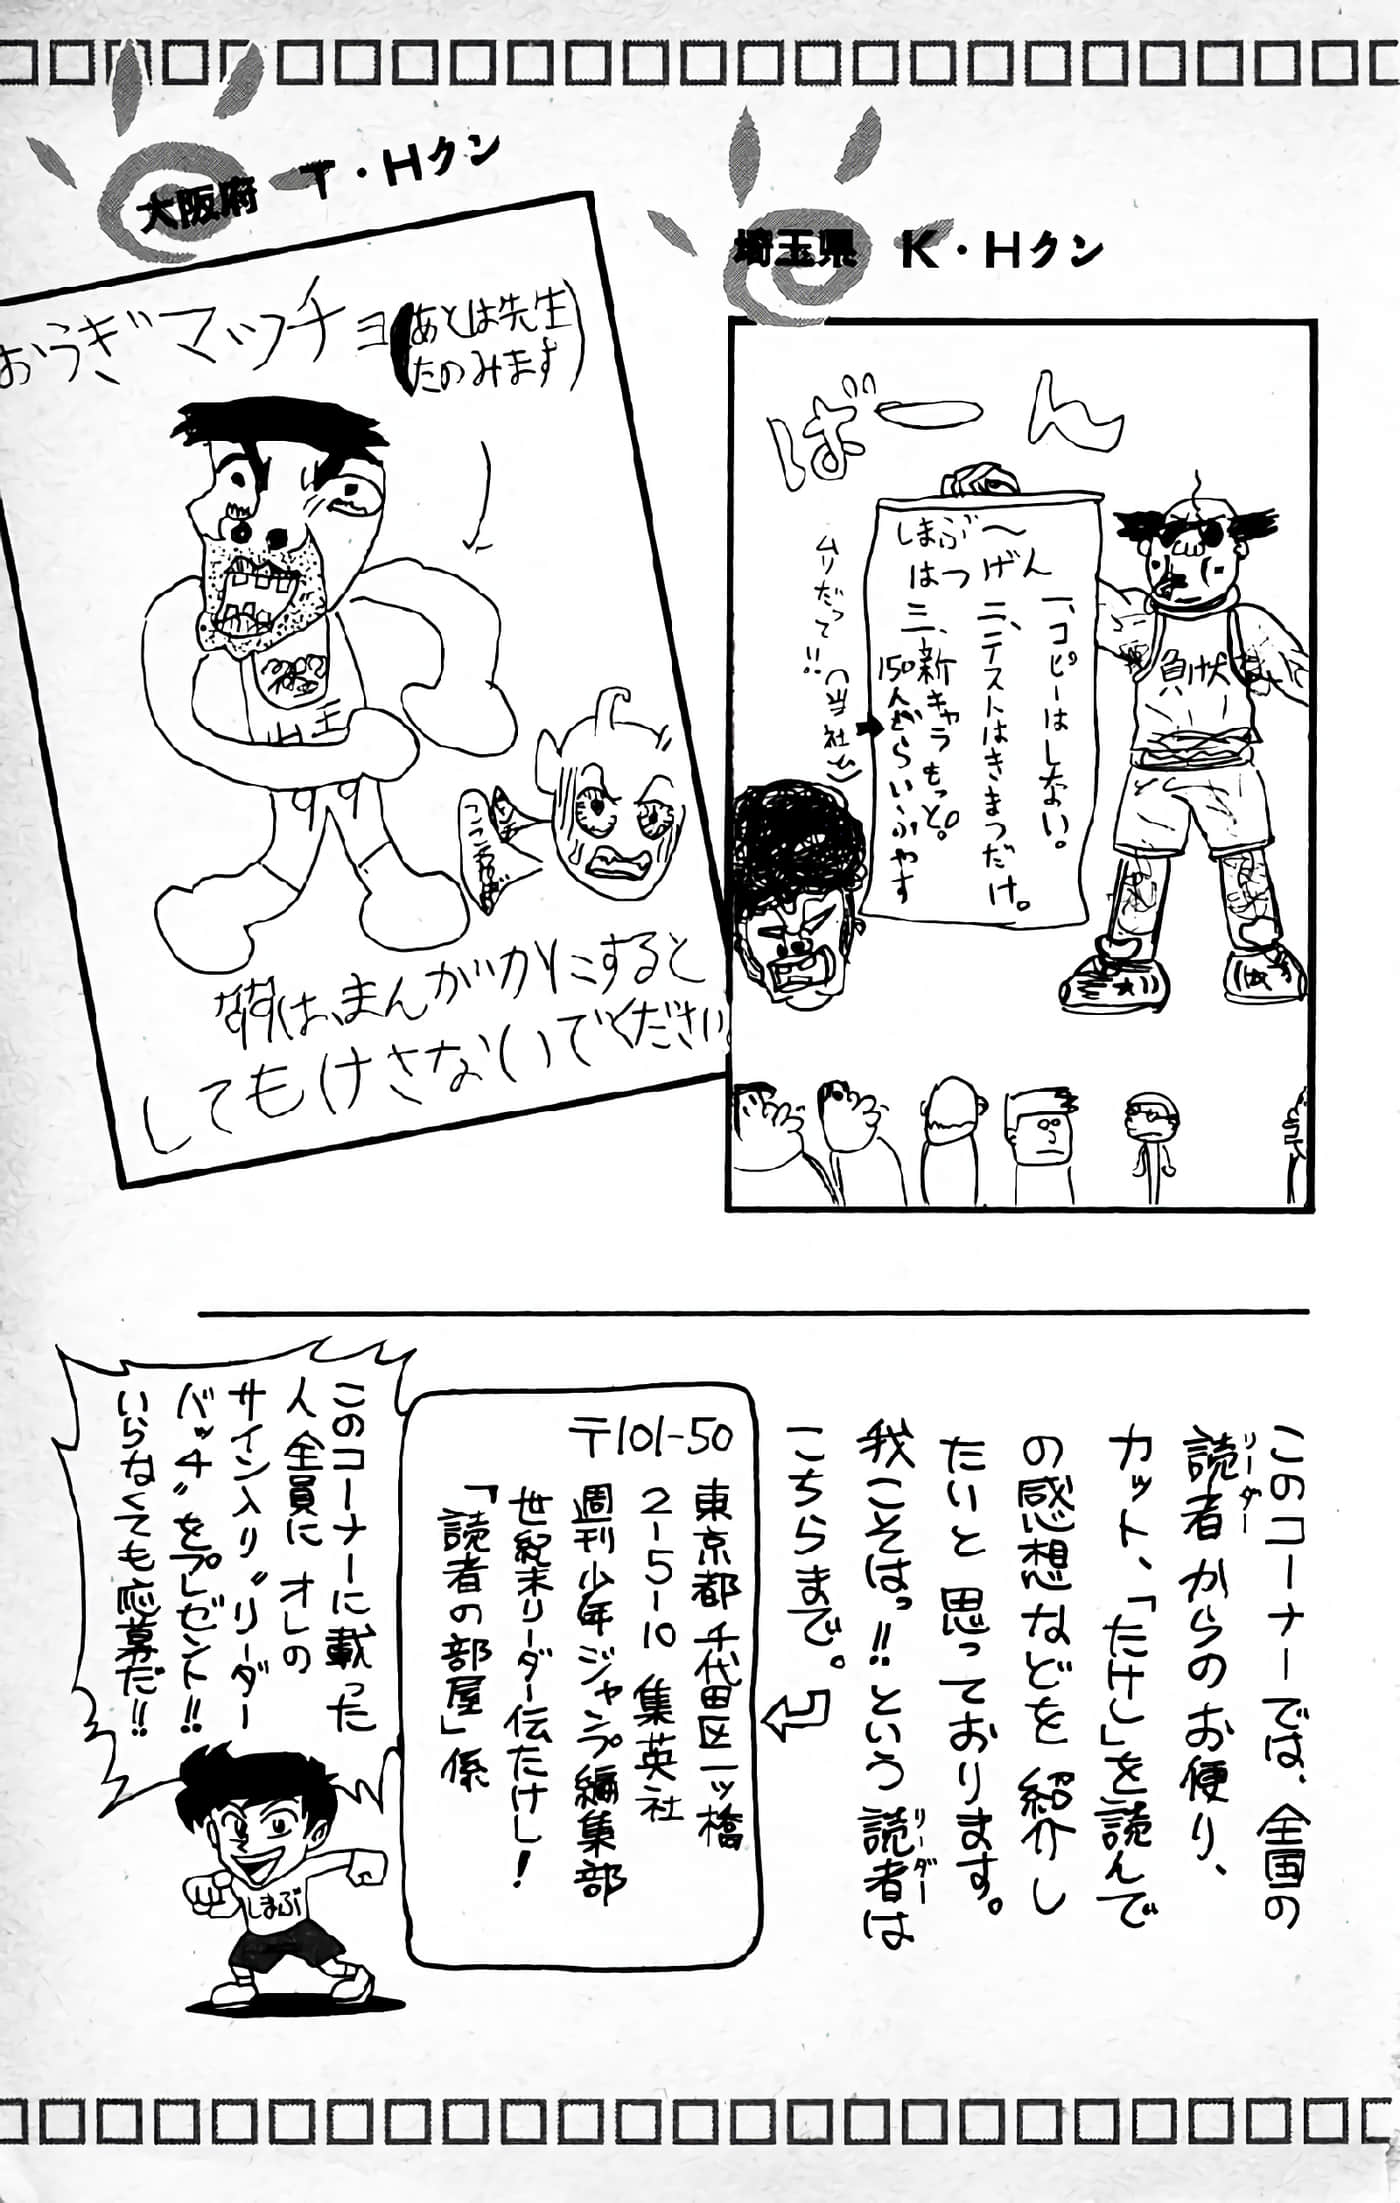 埼玉県 K・Hクン
ばーん
しまぶ〜
はつげん
一、コピーはしない。
二、テストはきまつだけ。
三、新キャラもっと。
150人ぐらいふやす
ムリだって!!
負け犬
大阪府 T・Hクン
おうぎマッチョ
(あとは先生
たのみます)
山王
まんがかにすると
してもけさないでください
このコーナーでは、全国の
読者からのお便り、
リーダー
カット、「たけし」を読んで
の感想などを紹介し
たいと思っております。
我こそはっ!!という読者は
リーダー
こちらまで。
〒101-50
東京都千代田区一ッ橋
2-5-10 集英社
週刊少年ジャンプ編集部
世紀末リーダー伝たけし!
「読者の部屋」係
このコーナーに載った
人全員にオレの
サイン入り〝リーダー
バッチ〟をプレゼント!!
いらなくても応募だ!!
しまぶ